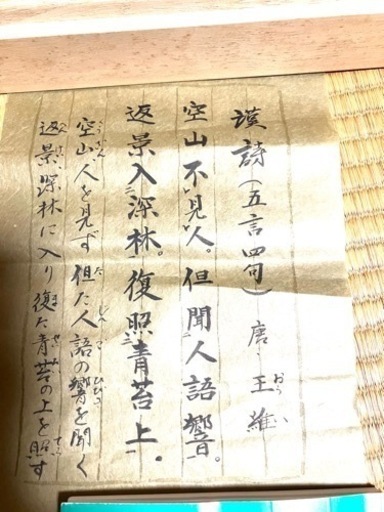 漢詩(五言四句) 唐、王維
空山不見人。但聞人語響。
返景入深林。復照青苔上。
空山人を見ず 但た人語の響を聞く
返景深林に入り 復た青苔の上を照す